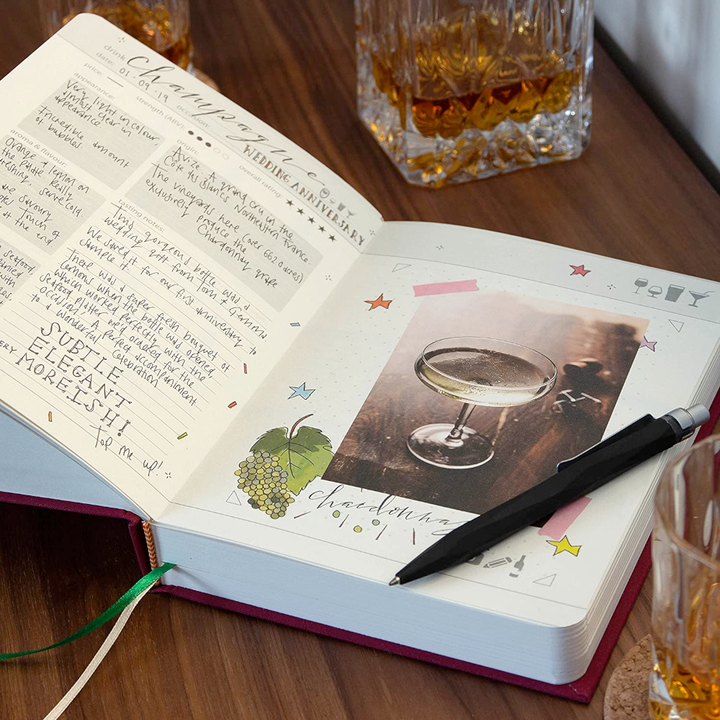 drink: Champagne
date: 01-09-19
occasion: WEDDING ANNIVERSARY
price:
strength (ABV):
overall rating:
appearance:
Very light in colour.
almost clear in
appearance
Incredible amount
of bubbles.
origin:
Avize. A grand cru in the
Côte des Blancs, Northeastern France
The vineyards here (over 662.0 acres)
exclusively produce the
Chardonnay grape
aroma & flavour:
Orange & lemon on
the palate. Really
refreshing, serve cold
savoury
Touch of
at the end
tasting notes:
This gorgeous bottle was a
wedding gift from Tom & Gemma
We saved it for our first anniversary to
sample it.
There was a super fresh bouquet of
lemons when the bottle was opened,
which worked perfectly with the
seafood platter we'd ordered for the
occasion. A perfect accompaniment
to a wonderful celebration!
seafood
with
SUBTLE
ELEGANT
VERY MOREISH!
Top me up!
chardonnay